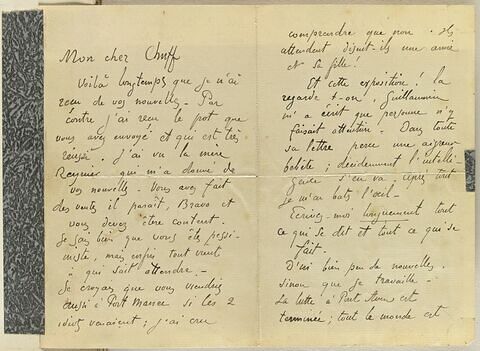 Mon cher Chuff
Voilà longtemps que je n'ai
reçu de vos nouvelles - Par
contre j'ai reçu le pot que
vous avez envoyé et qui est très
réussi. J'ai vu la mère
qui m'a donné de
vos nouvelles - Vous avez fait
des ventes il paraît, Bravo et
vous devez être content -
Je sais bien que vous êtes pessi-
miste, mais enfin tout vient
à qui sait attendre -
Je croyais que vous viendriez
aussi à Port Manec si les 2
idiots venaient ; j'ai cru
comprendre que non. Ils
attendent disent-ils une amie
et sa fille !
Et cette exposition ! la
regarde t-on, Guillaumin
m'a écrit que personne n'y
faisait attention - Dans toute
sa lettre perce une aigreur
bebête ; décidément l'intelli-
gence s'en va. Après tout
je m'en bats l'oeil -
Ecrivez-moi longuement tout
ce qui se dit et tout ce qui se
fait -
D'ici bien peu de nouvelles.
sinon que je travaille -
La lutte à Pont Aven est
terminée ; tout le monde est